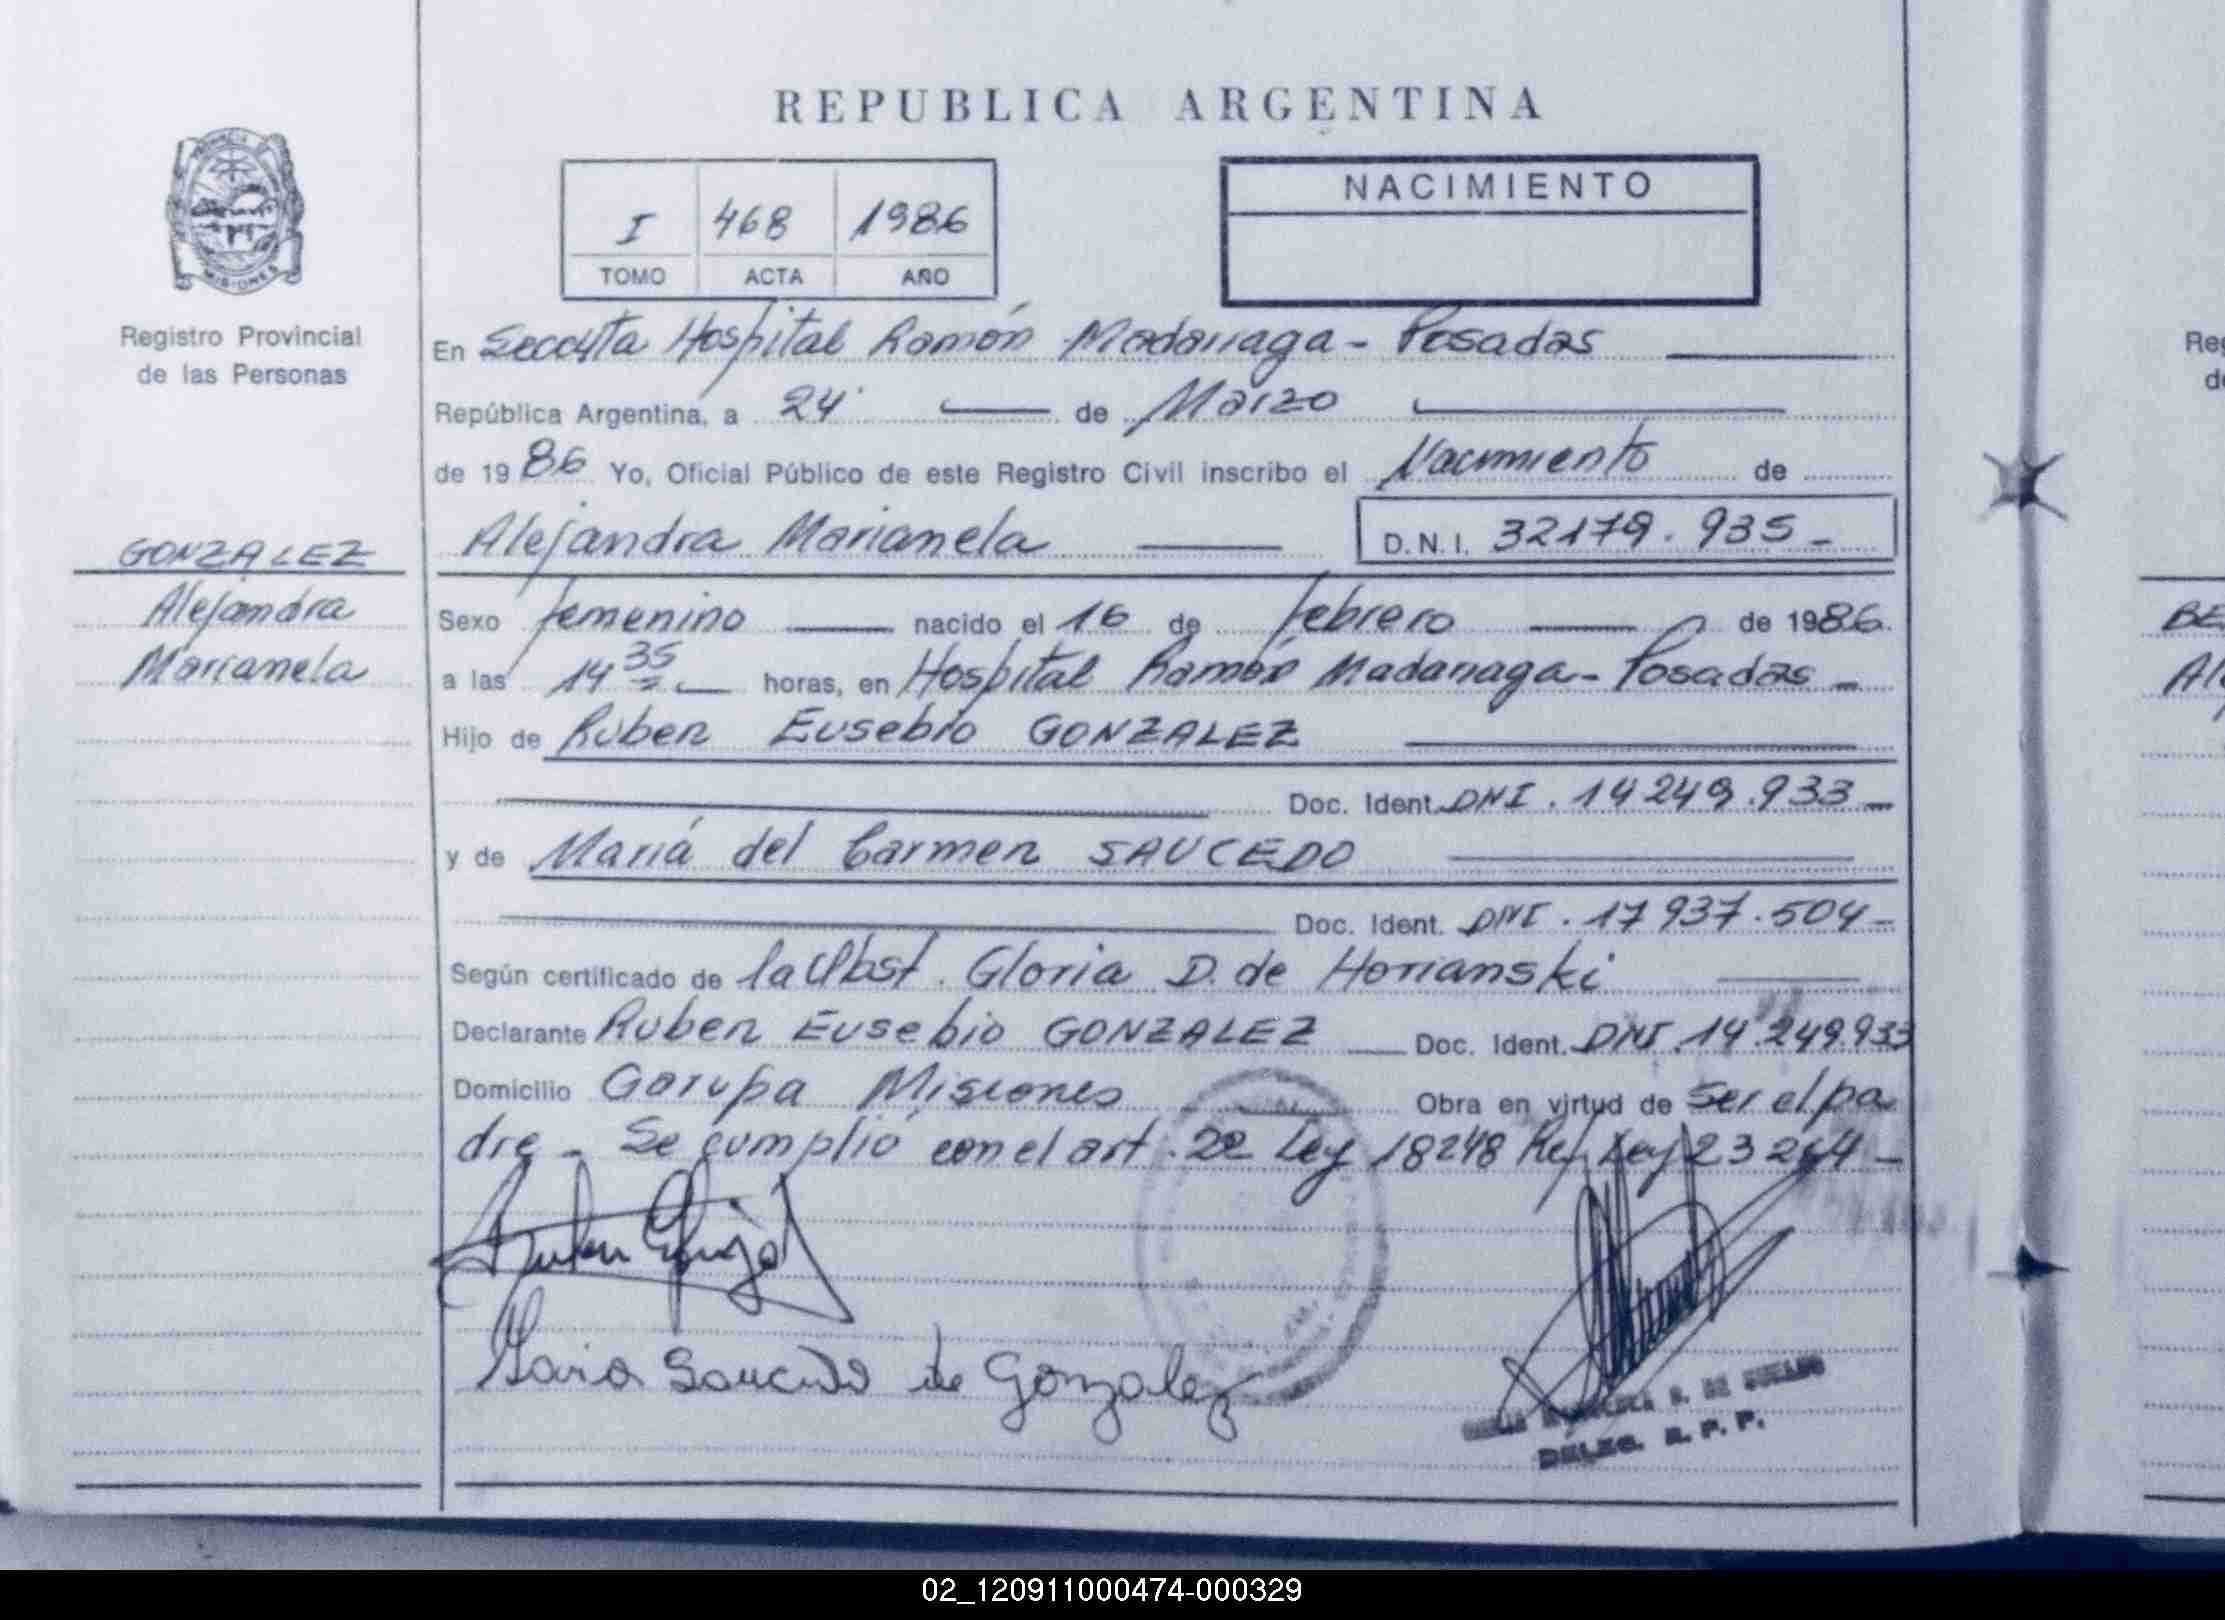 REPUBLICA ARGENTINA
PROVINCIA
MISIONES
Registro Provincial
de las Personas
I 468 1986
TOMO ACTA AÑO
NACIMIENTO
En Hospital Ramón Madariaga - Posadas
República Argentina, a 24 de Marzo
de 1986 Yo, Oficial Público de este Registro Civil inscribo el Nacimiento de
Alejandra Marianela D.N.I. 32179.935-
GONZALEZ
Alejandra
Marianela
Sexo femenino nacido el 16 de febrero de 1986.
a las 14 35 horas, en Hospital Ramón Madariaga - Posadas -
Hijo de Rúben Eusebio GONZALEZ
Doc. Ident. DNI. 14249.933-
y de María del Carmen SAUCEDO
Doc. Ident. DNI. 17937.504-
Según certificado de la Obst. Gloria D. de Horianski
Declarante Ruben Eusebio GONZALEZ Doc. Ident. DNI. 14.249.933
Domicilio Garupa Misiones Obra en virtud de ser el pa
dre - Se cumplió con el art. 22 Ley 18248 Ref Ley 23264-
Maria Saucedo de Gonzalez
DELEG. R. P. P.
Reg
de
BE
Ale
02_120911000474-000329